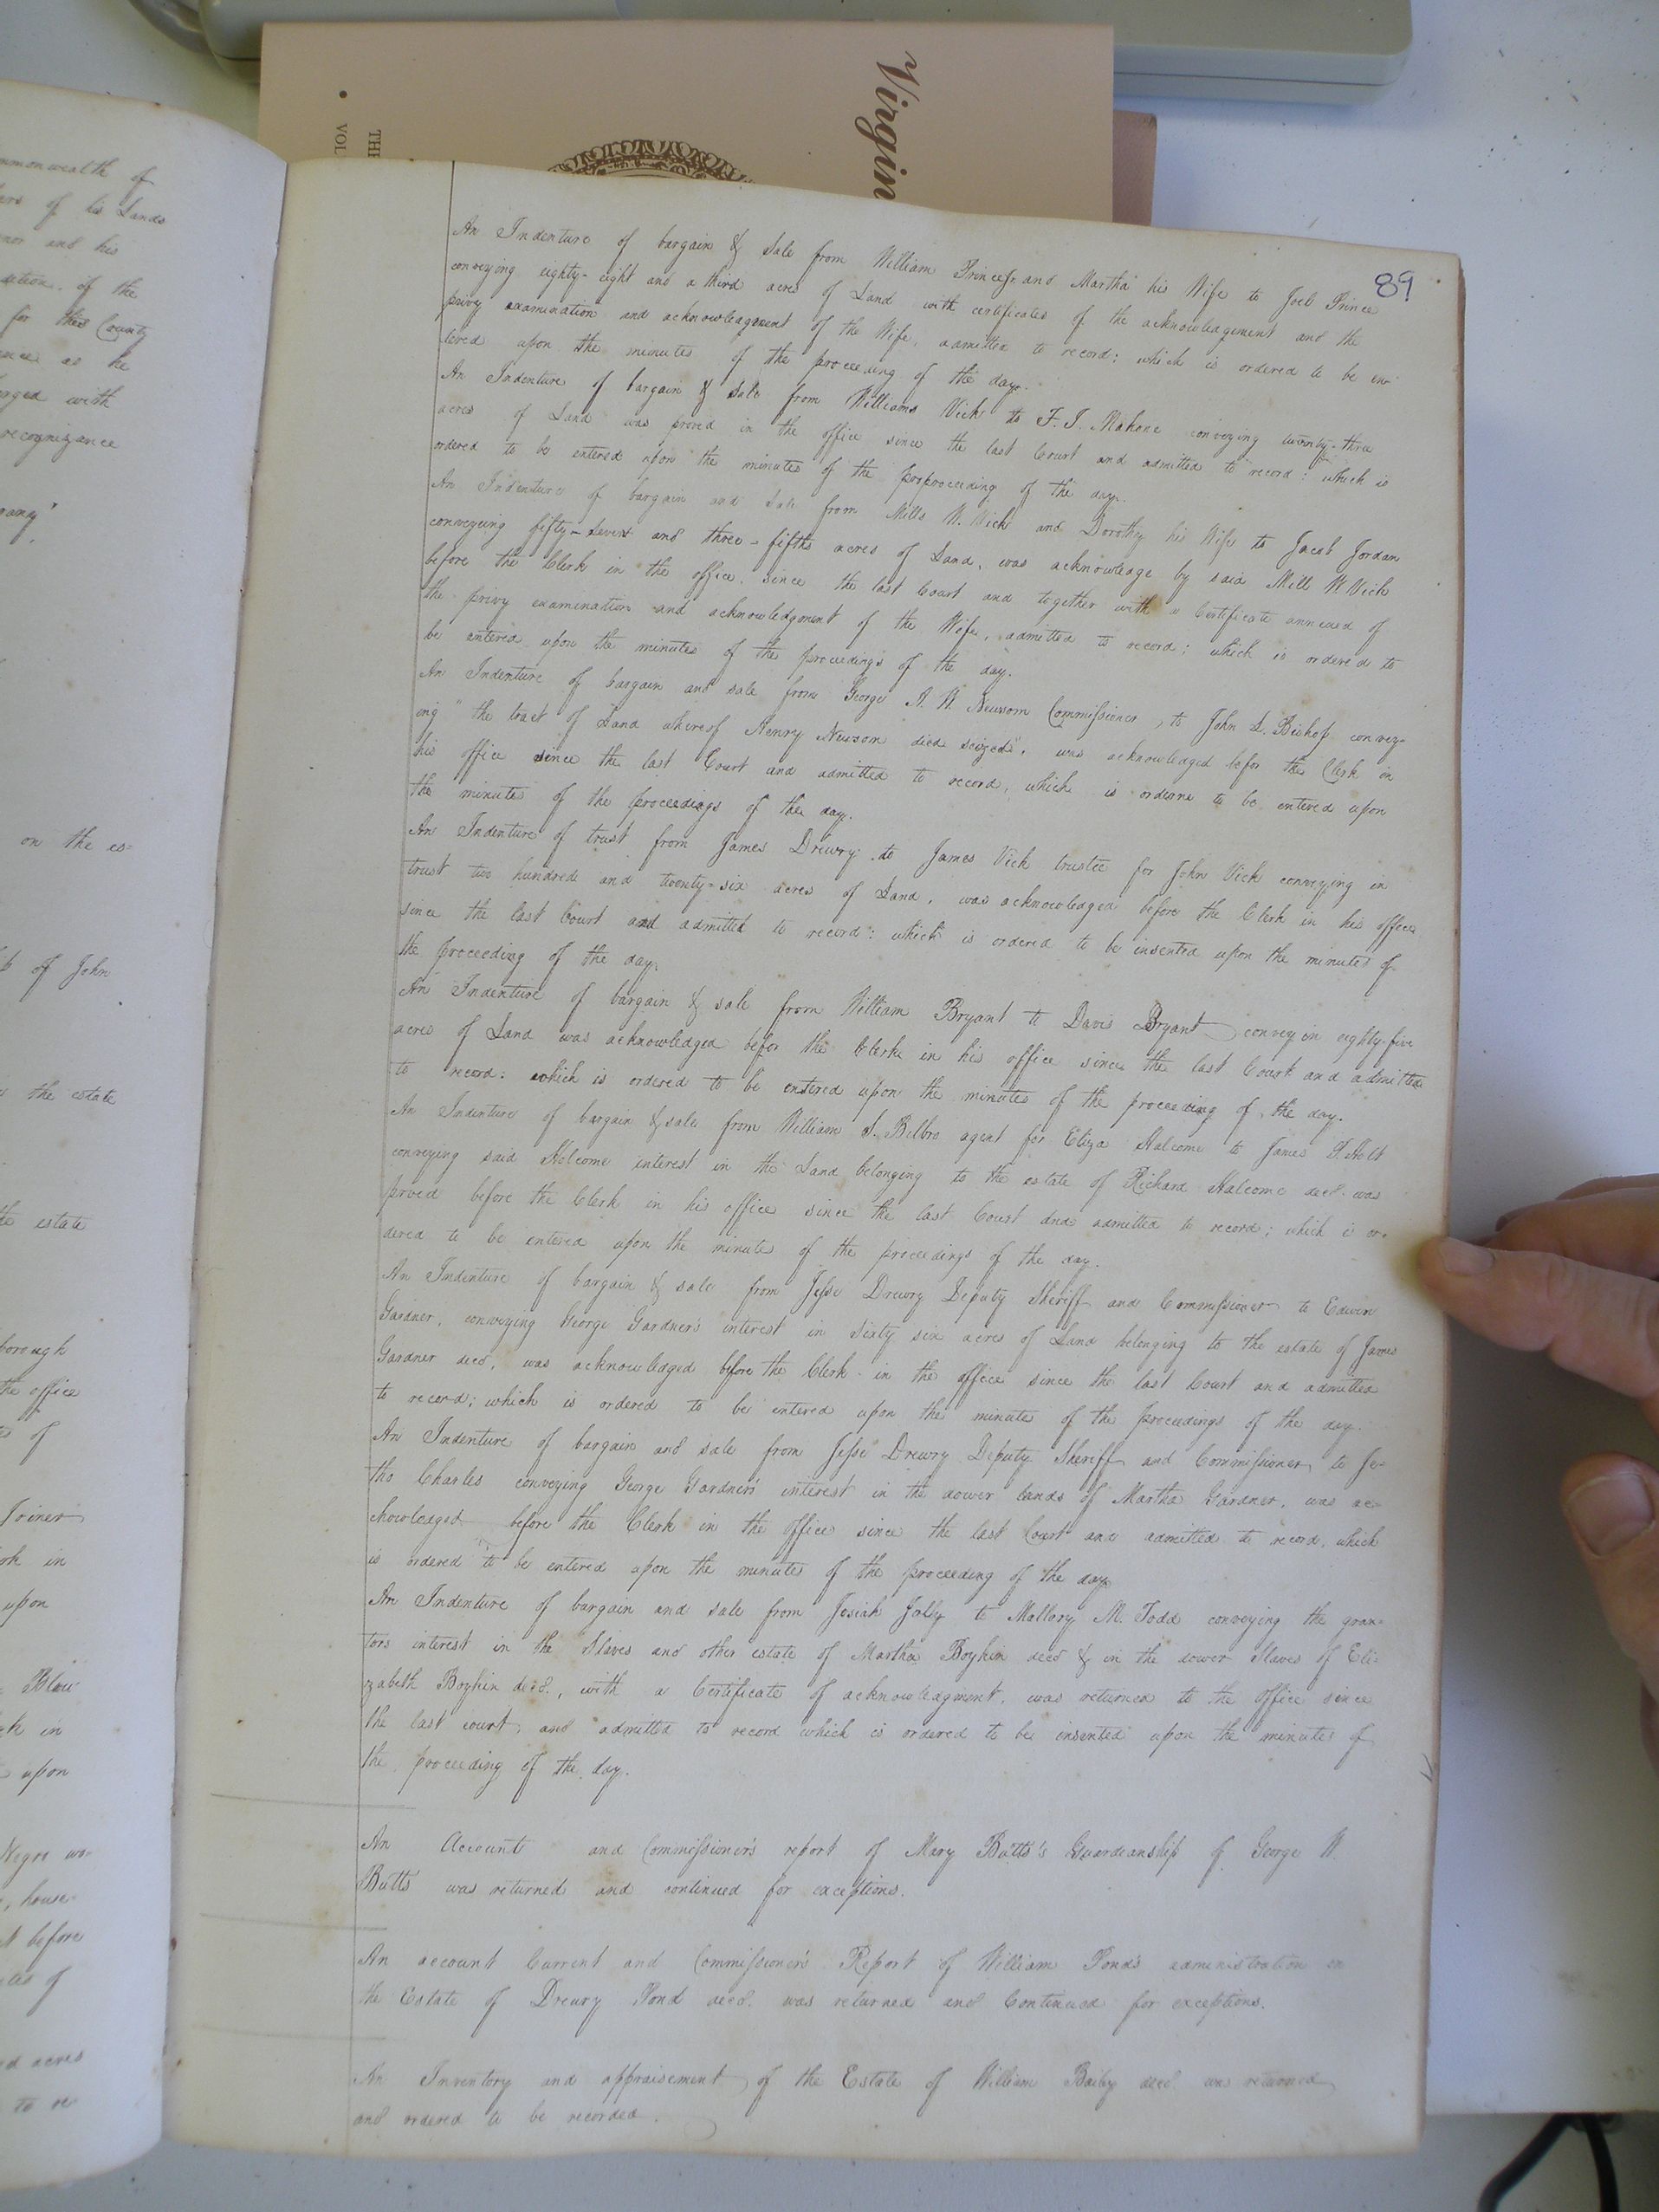 Virgin
THE
VOL
89
An Indenture of bargain & Sale from William Prince and Martha his Wife to Joel Prince
conveying eighty-eight and a third acres of Land with certificates of the acknowledgment and the
privy examination and acknowledgment of the Wife, admitted to record; which is ordered to be en-
tered upon the minutes of the proceeding of the day.
An Indenture of bargain & Sale from Williams Vick to F. J. Mahone conveying twenty-three
acres of Land was proved in the office since the last Court and admitted to record: which is
ordered to be entered upon the minutes of the proproceeding of the day.
An Indenture of bargain and sale from Mills W. Vick and Dorothy his Wife to Jacob Jordan
conveying fifty-seven and three-fifths acres of Land, was acknowledge by said Mills W Vick
before the Clerk in the office since the last Court and together with a Certificate annexed of
the privy examination and acknowledgment of the Wife, admitted to record; which is ordered to
be entered upon the minutes of the proceedings of the day.
An Indenture of bargain and sale from George A. W. Newsom Commissioner, to John L. Bishop convey-
ing "the tract of Land whereof Henry Newsom died seized", was acknowledged befor the Clerk in
his office since the last Court and admitted to record, which is orderne to be entered upon
the minutes of the proceedings of the day.
An Indenture of trust from James Drewry to James Vick trustee for John Vick conveying in
trust two hundred and twenty-six acres of Land, was acknowledged before the Clerk in his office
since the last Court and admitted to record: which is ordered to be inserted upon the minutes of
the proceeding of the day.
An Indenture of bargain & sale from William Bryant to Davis Bryant convey in eighty-five
acres of Land was acknowledged befor the Clerk in his office since the last Court and admitted
to record: which is ordered to be entered upon the minutes of the proceeding of the day.
An Indenture of bargain & sale from William S. Bilbro agent for Eliza Halcome to James S. Holt
conveying said Holcome interest in the Land belonging to the estate of Richard Halcome decd. was
proved before the Clerk in his office since the last Court and admitted to record; which i or-
dered to be entered upon the minutes of the proceedings of the day.
An Indenture of bargain & sale from Jesse Drewry Deputy Sheriff and Commissioner to Edwin
Gardner, conveying George Gardner's interest in Sixty six acres of Land belonging to the estate of James
Gardner decd, was acknowledged before the Clerk in the office since the last Court and admitted
to record; which is ordered to be entered upon the minutes of the proceedings of the day.
An Indenture of bargain and sale from Jesse Drewry Deputy Sheriff and Commissioner, to Je-
tho Charles conveying George Gardner's interest in the dower lands of Martha Gardner, was ac-
knowledged before the Clerk in the office since the last Court and admitted to record, which
is ordered to be entered upon the minutes of the proceeding of the day
An Indenture of bargain and sale from Josiah Jolly to Mallory M. Todd conveying the gran-
tors interest in the Slaves and other estate of Martha Boykin decd & in the dower Slaves of Eli-
zabeth Boykin decd., with a Certificate of acknowledgment, was returned to the office since
the last court, and admitted to record which is ordered to be inserted upon the minutes of
the proceeding of the day.
An Account and Commissioner's report of Mary Butts's Guardianship of George W.
Butts was returned and continued for exceptions.
An account Current and Commissioner's Report of William Pond's administration on
the Estate of Drewry Pond decd. was returned and Continued for exceptions.
An Inventory and appraisement of the Estate of William Bailey decd was returned
and ordered to be recorded.